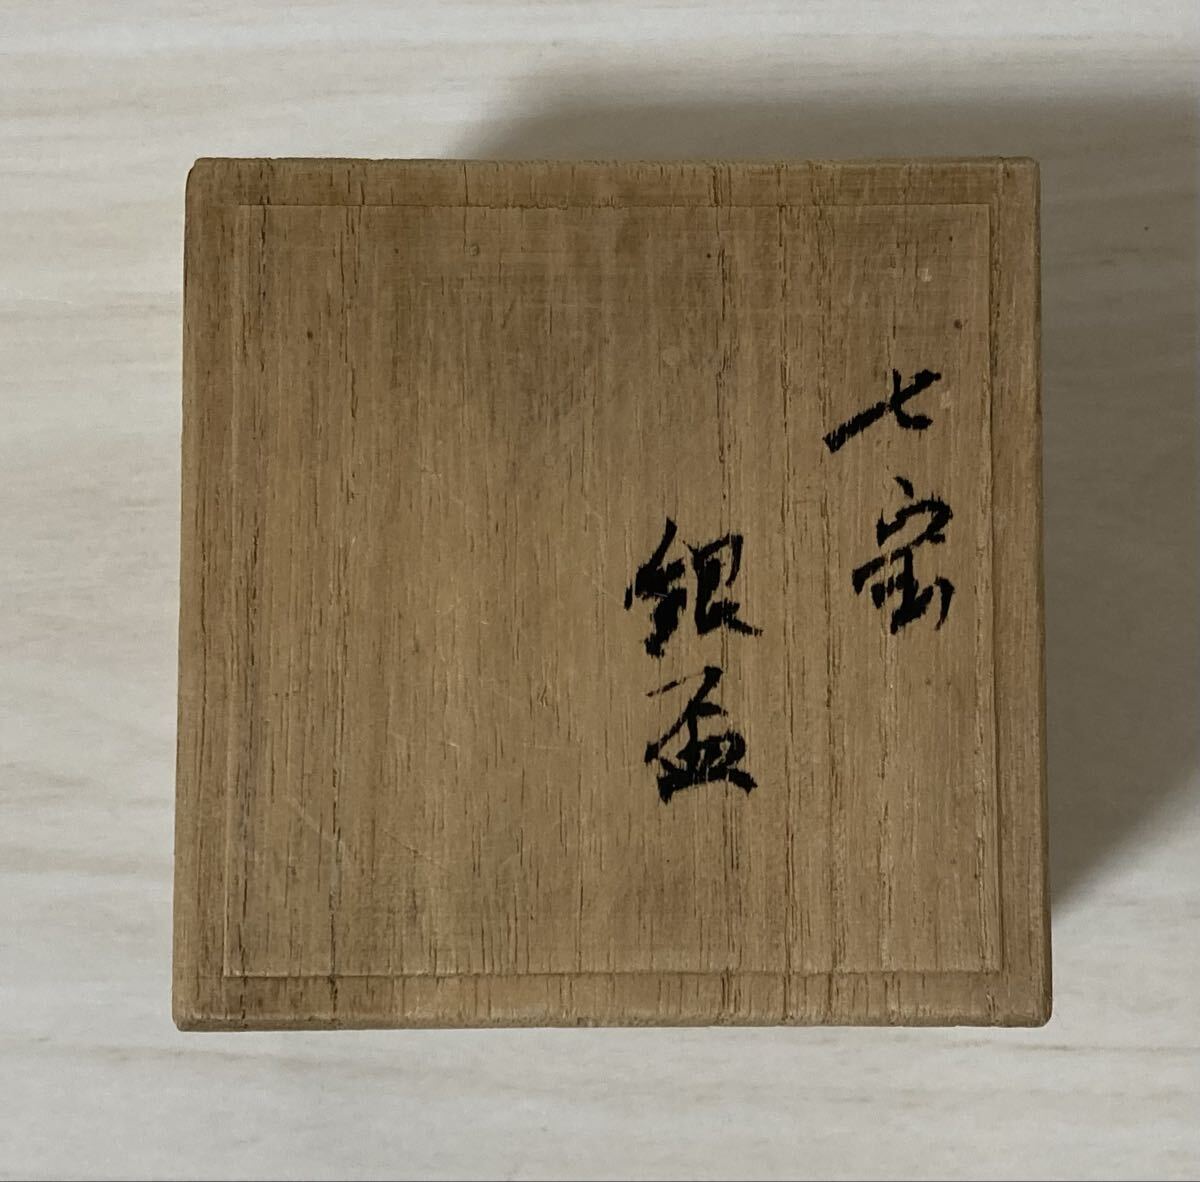 七宝
銀盃